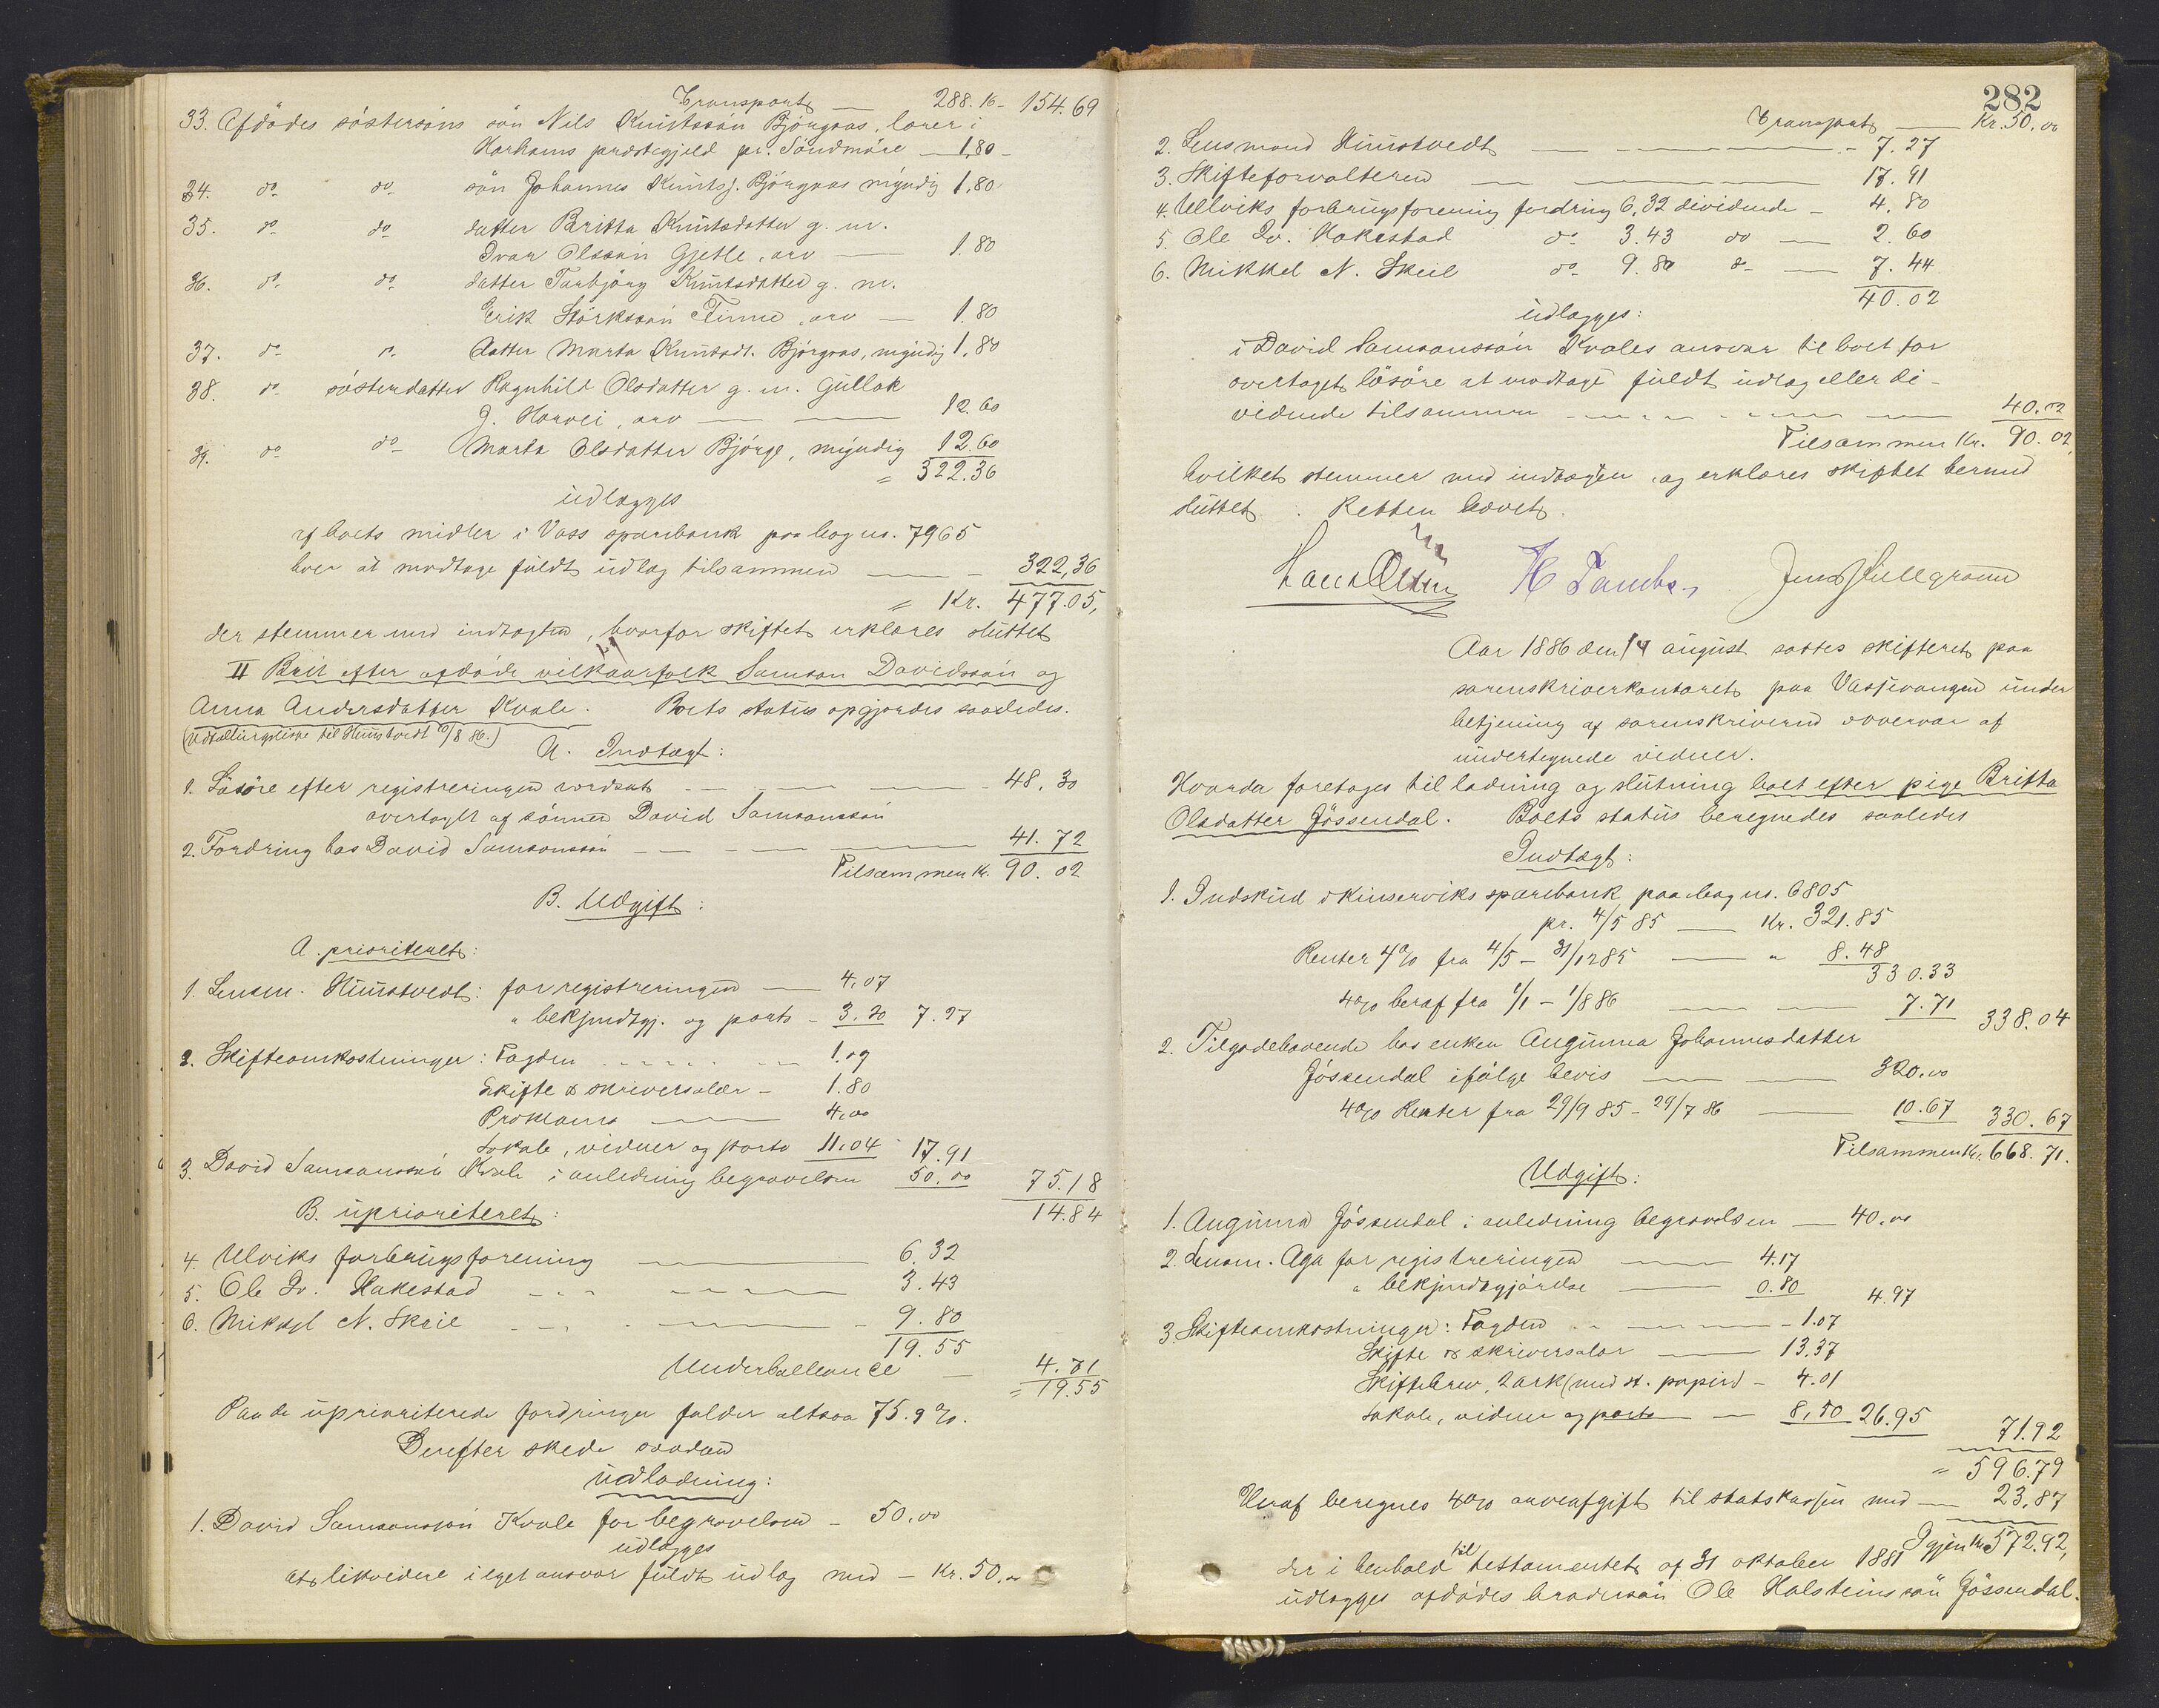 Transport — 288.16 — 154.69
33. Afdødes søstersøns søn Nils Knutssøn Bjørgaas, lærer i
Harhams præstegjeld pr. Søndmøre — 1,80
34. do do søn Johannes Knuts. Bjørgaas myndig 1,80
35. do do datter Britta Knutsdatter g. m.
Ivar Olssøn Gjetle, arv — 1.80
36. do do datter Torbjørg Knutsdatter g. m.
Erik Størkssøn Finne, arv — 1.80
37. do do datter Marta Knutsdt. Bjørgaas, myndig 1,80
38. do søsterdatter Ragnhild Olsdatter g. m. Gullak
J. Horvei, arv — 12.60
39. do do Marta Olsdatter Bjørge, myndig 12.60
= 322.36
udlægges
af boets midler i Voss sparebank paa bog no. 7965
hver at modtage fuldt udlæg tilsammen — 322,36
= Kr. 477.05,
der stemmer med indtægten, hvorfor skiftet erklæres sluttet
II Boet efter afdøde vilkaarsfolk Samson Davidssøn og
Anna Andersdatter Kvale. Boets status opgjordes saaledes.
(Udtællingsliste til Hunstvedt /8 86.)
A. Indtægt:
1. Løsøre efter registreringen vordsat — 48,30
overtaget af sønnen David Samsonssøn
2. Fordring hos David Samsonssøn — 41.72
Tilsammen Kr. 90.02
B. Udgift:
A. prioriteret:
1. Lensm. Hunstvedt: for registreringen — 4,07
" bekjendtgj. og porto — 3.20 7.27
2. Skifteomkostninger: Fogden — 1.09
Skifte & skriversalær — 1.80
Proklama — 4,00
Lokale, vidner og porto 11.04 17.91
3. David Samsonssøn Kvale i anledning begravelsen 50.00 75.18
B. uprioriteret: 14.84
4. Ulviks forbrugsforening — 6.32
5. Ole Iv. Hakestad — 3.43
6. Mikkel N. Skeie — 9.80
19.55
Underballance — 4.71
= 19.55
Paa de uprioriterede fordringer falder altsaa 75.9 %.
Derefter skede saadan
udlodning:
1. David Samsonssøn Kvale for begravelsen — 50.00
udlægges
at likvidere i eget ansvar fuldt udlæg med — Kr. 50.00
282
Transport — Kr. 50,00
2. Lensmand Hunstvedt — 7.27
3. Skifteforvalteren — 17.91
4. Ullviks forbrugsforening fordring 6,32 dividende — 4.80
5. Ole Iv. Hakestad do 3.43 do — 2.60
6. Mikkel N. Skeie do 9.80 do — 7.44
40.02
udlægges:
i David Samsonssøn Kvales ansvar til boet for
overtaget løsøre at modtage fuldt udlæg eller di-
vidende tilsammen — 40.02
Tilsammen Kr. 90.02,
hvilket stemmer med indtægten, og erklæres skiftet hermed
sluttet. Retten hævet.
Hans Olsen H Lambe Jens Hellgraven
Aar 1886 den 14 august sattes skifteret paa
sorenskriverkontoret paa Vossevangen under
betjening af sorenskriveren i overvær af
undertegnede vidner.
Hvorda foretoges til lodning og slutning boet efter pige Britta
Olsdatter Jøssendal. Boets status beregnedes saaledes
Indtægt:
1. Indskud i Kinserviks sparebank paa bog no. 6805
pr. 4/5 85 — Kr. 321.85
Renter 4% fra 4/5 — 31/12 85 — " 8.48
330.33
4% heraf fra 1/1 — 1/8 86 — 7.71 338.04
2. Tilgodehavende hos enken Angunna Johannesdatter
Jøssendal ifølge bevis — 320.00
4% Renter fra 29/9 85 — 29/7 86 — 10.67 330.67
Tilsammen Kr. 668.71.
Udgift:
1. Angunna Jøssendal i anledning begravelsen — 40,00
2. Lensm. Aga for registreringen — 4.17
" bekjendtgjørelse — 0.80 4.97
3. Skifteomkostninger: Fogden — 1.07
Skifte & skriversalær — 13.37
Skiftebrev, 2 ark (med st. papir) — 4.01
Lokale, vidner og porto — 8,50 26.95 71.92
= 596.79
Heraf beregnes 4% arveafgift til statskassen med — 23,87
Igjen Kr. 572.92,
der i henhold til testamentet af 31 oktober 1881
udlægges afdødes brodersøn Ole Halsteinssøn Jøssendal.